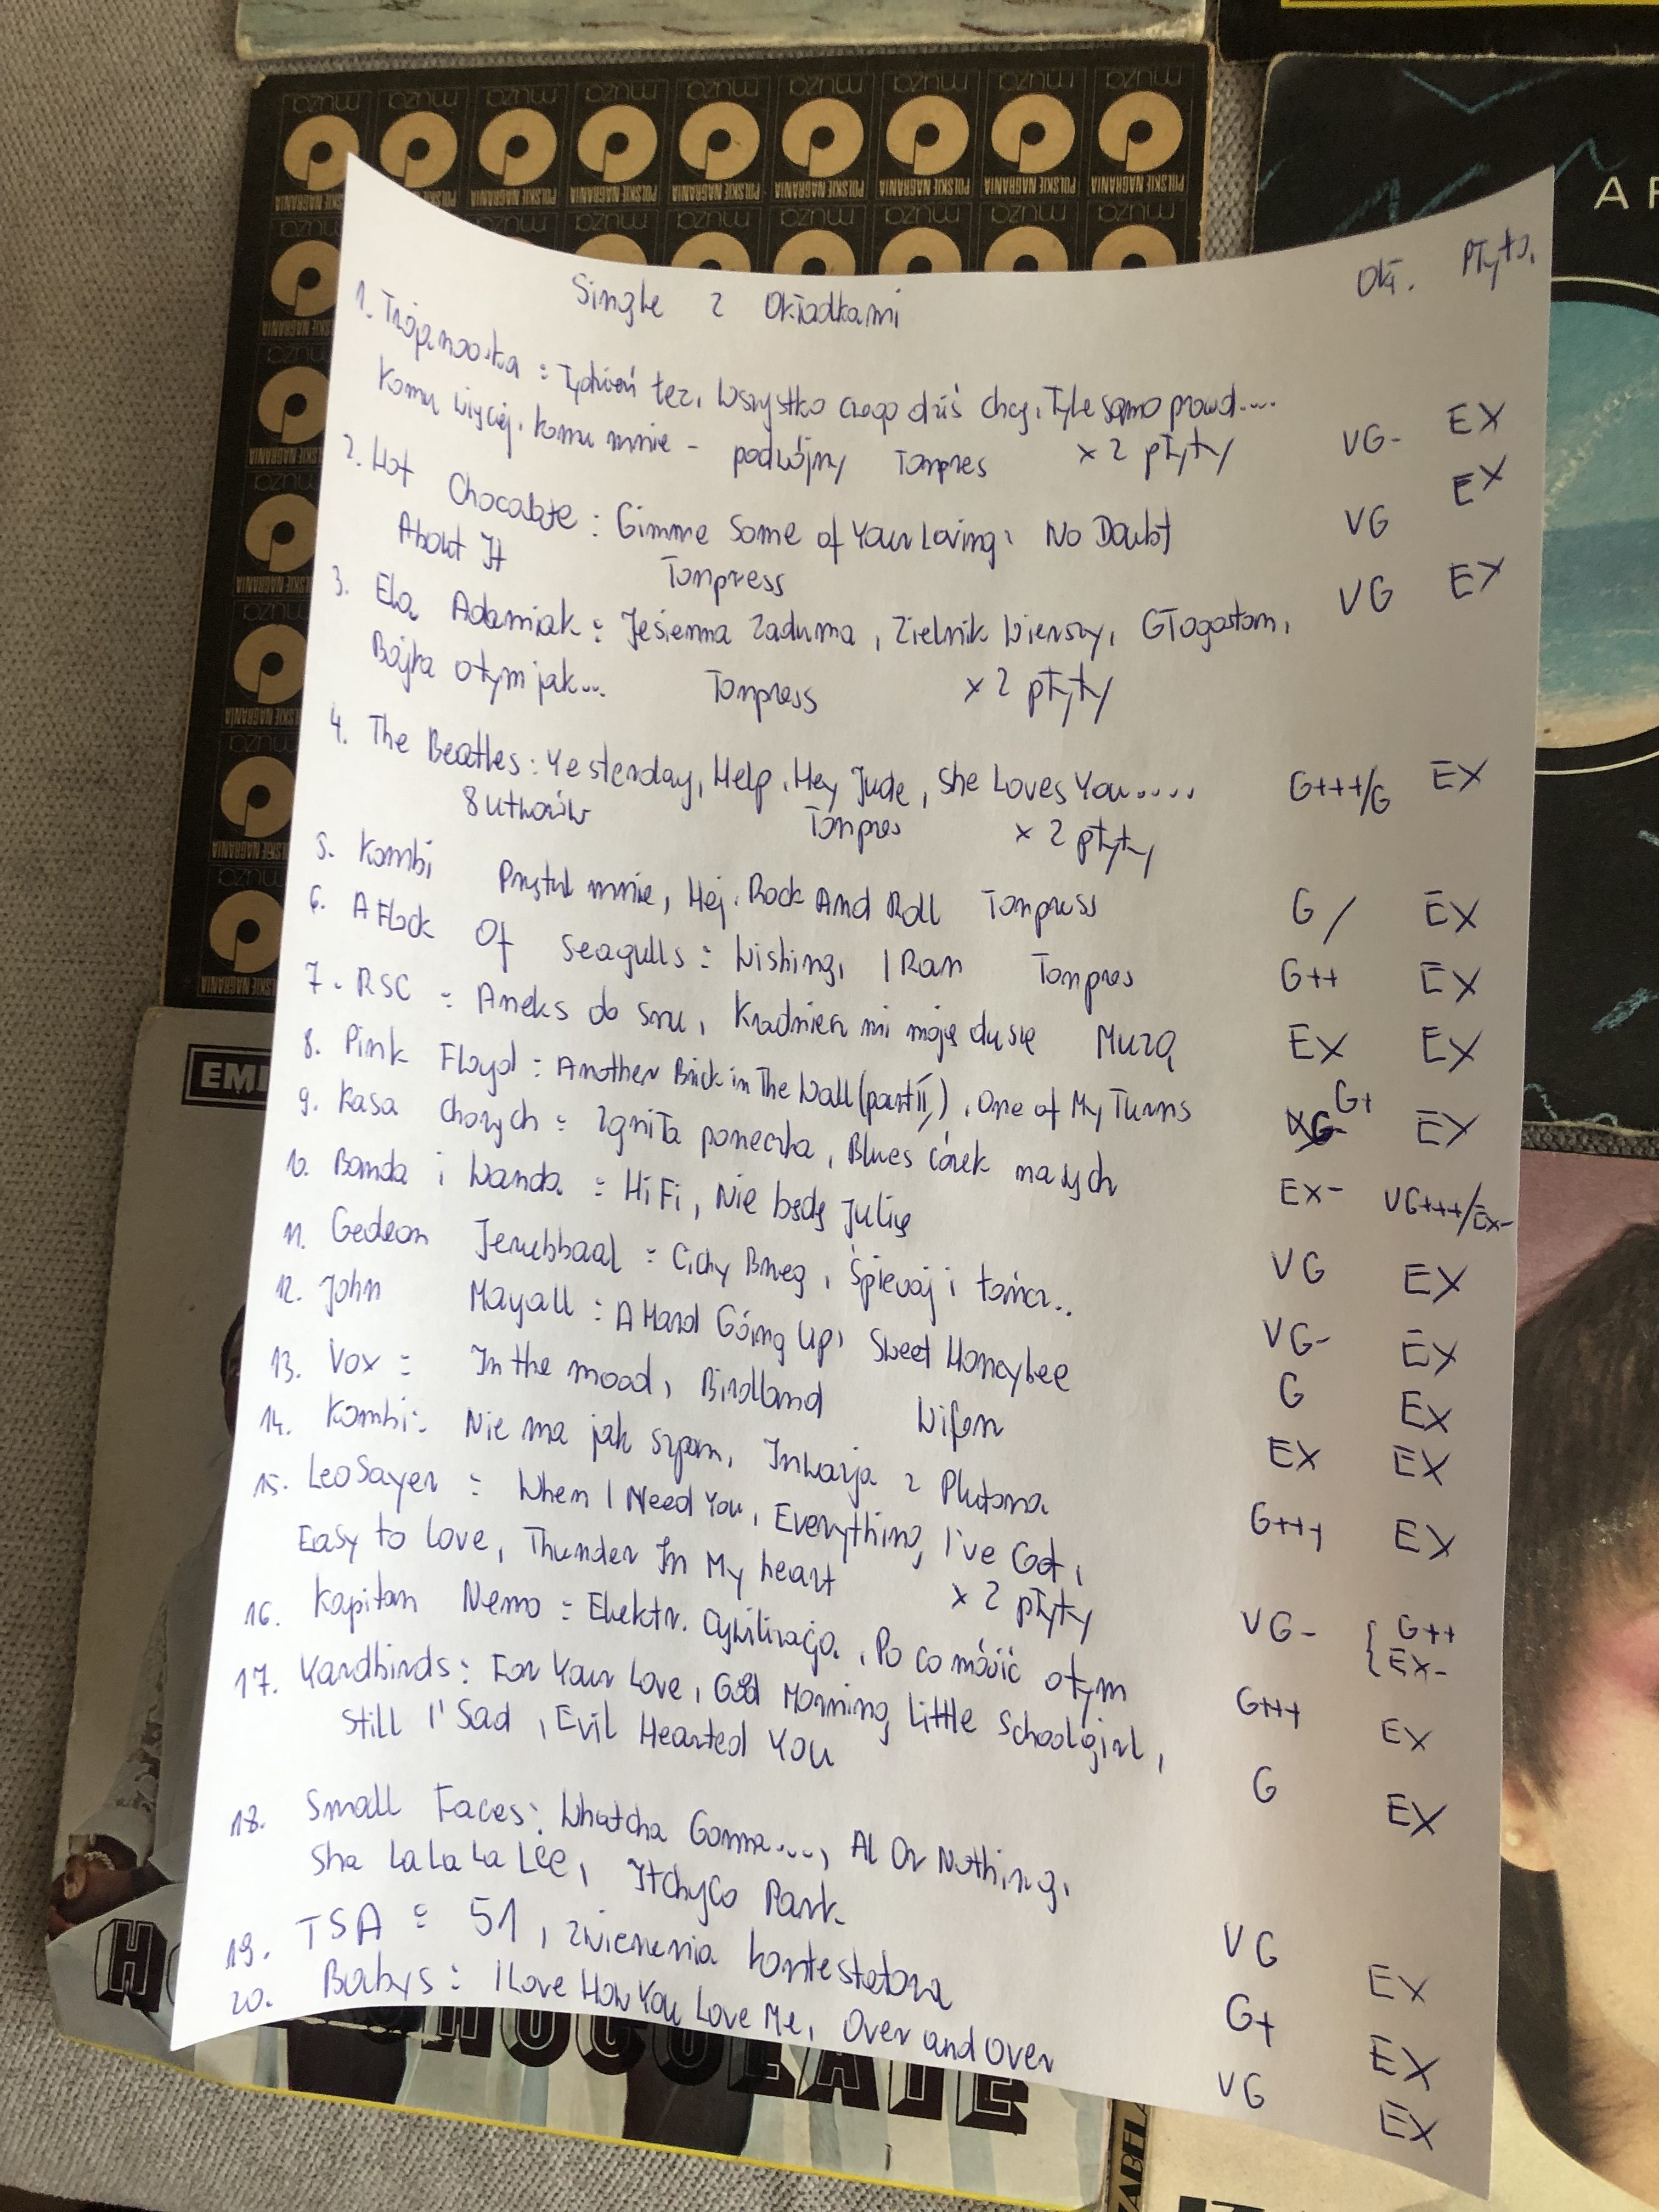 Single z Okładkami Okł. Płyta.
1. Trojanowska : Tydzień łez, Wszystko czego dziś chcę, Tyle samo prawd....
Komu więcej, komu mnie - podwójny Tonpres x 2 płyty VG- EX
2. Hot Chocolate : Gimme Some of Your Loving, No Doubt VG EX
About It Tonpress
3. Ela Adamiak : Jesienna Zaduma, Zielnik Wierszy, Głogostom, VG EX
Bajka o tym jak... Tonpress x 2 płyty
4. The Beatles : Yesterday, Help, Hey Jude, She Loves You.... G+++/G EX
8 utworów Tonpres x 2 płyty
5. Kombi Przytul mnie, Hej. Rock And Roll Tonpress G / EX
6. A Flock Of Seagulls : Wishing, I Ran Tonpres G++ EX
7. RSC : Aneks do snu, Kradniesz mi moją duszę Muza EX EX
8. Pink Floyd : Another Brick in The Wall (part II), One of My Turns G+ EX
9. Kasa Chorych : Zgniła poneczka, Blues córek naszych EX- VG+++/EX-
10. Banda i Wanda : Hi Fi, Nie będę Julią VG EX
11. Gedeon Jerubbaal : Cichy Brzeg, Śpiewaj i tańcz.. VG- EX
12. John Mayall : A Hard Going Up, Sweet Honeybee G EX
13. Vox : In the mood, Birdland Wifon EX EX
14. Kombi : Nie ma jak szpan, Inwazja z Plutona G+++ EX
15. Leo Sayer : When I Need You, Everything, I've Got,
Easy to Love, Thunder In My heart x 2 płyty VG- { G++ EX-
16. Kapitan Nemo : Elektr. Cywilizacja, Po co mówić o tym G+++ EX
17. Yardbirds : For Your Love, Good Morning Little Schoolgirl,
Still I' Sad, Evil Hearted You G EX
18. Small Faces : Whatcha Gonna...., Al Or Nothing,
Sha La La La Lee, Itchyco Park. VG EX
19. TSA : 51, Zwierzenia kontestatora G+ EX
20. Babys : I Love How You Love Me, Over and Over VG EX
muza
POLSKIE NAGRANIA
EMI
HOT CHOCOLATE